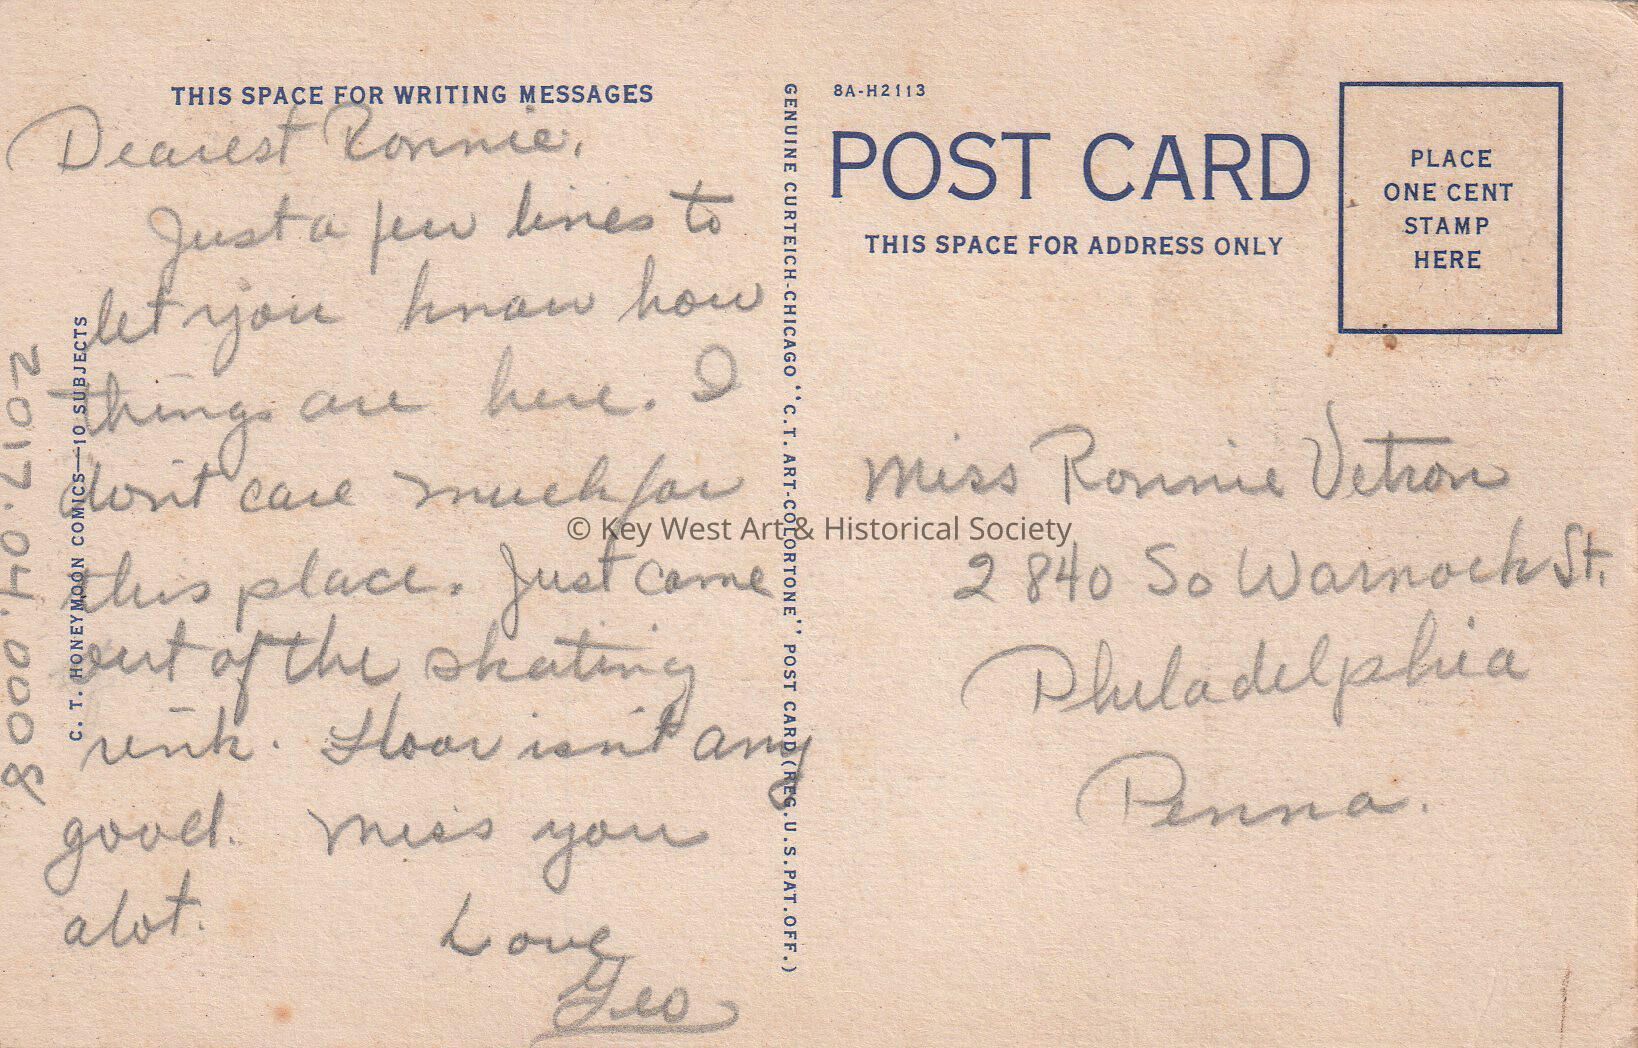 THIS SPACE FOR WRITING MESSAGES
Dearest Ronnie,
Just a few lines to
let you know how
things are here. I
don't care much for
this place. Just came
out of the skating
rink. Floor isn't any
good. Miss you
alot.
Love
Geo
2017.04.0008
C. T. HONEYMOON COMICS—10 SUBJECTS
GENUINE CURTEICH-CHICAGO "C. T. ART-COLORTONE" POST CARD (REG. U. S. PAT. OFF.)
8A-H2113
POST CARD
THIS SPACE FOR ADDRESS ONLY
PLACE
ONE CENT
STAMP
HERE
Miss Ronnie Vetron
2840 So Warnock St.
Philadelphia
Penna.
© Key West Art & Historical Society